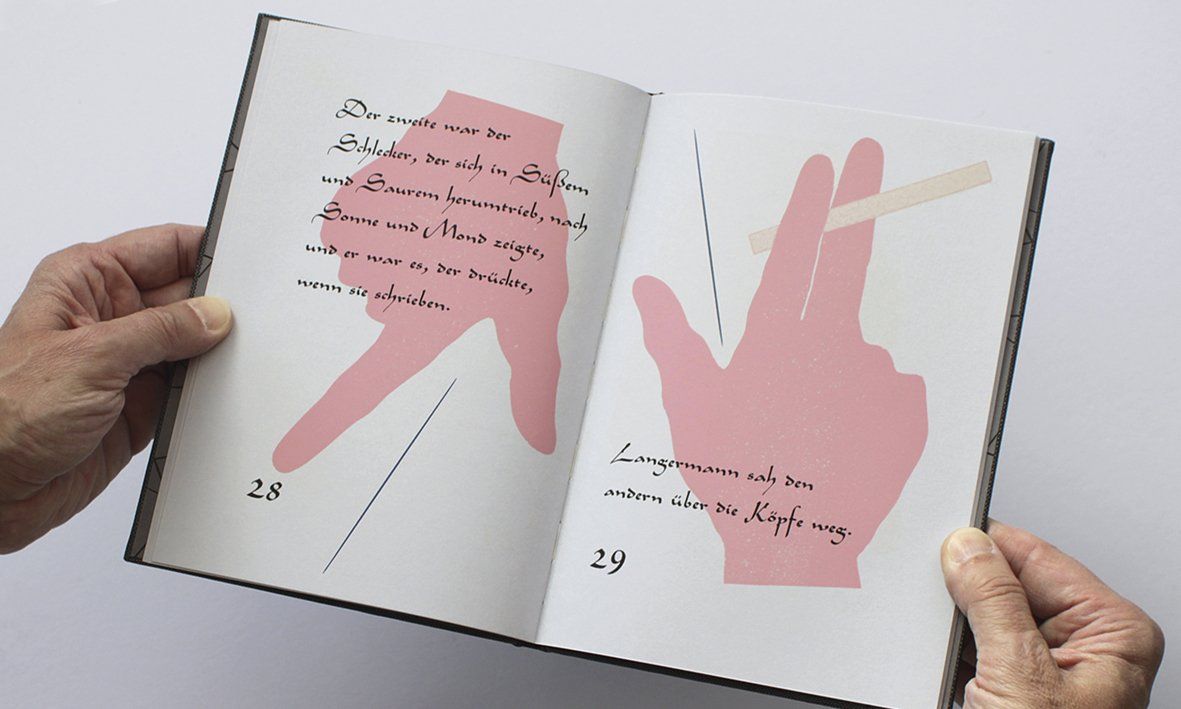 Der zweite war der
Schlecker, der sich in Süßem
und Saurem herumtrieb, nach
Sonne und Mond zeigte,
und er war es, der drückte,
wenn sie schrieben.
28
Langermann sah den
andern über die Köpfe weg.
29